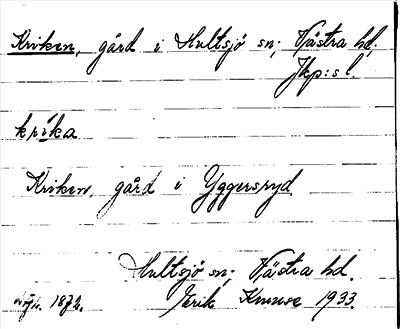 Kriken, gård i Hultsjö sn; Västra hd;
Jkp:s l.
krika
Kriken, gård i Yggersryd.
Hultsjö sn; Västra hd.
1872. Erik Kruuse 1933.